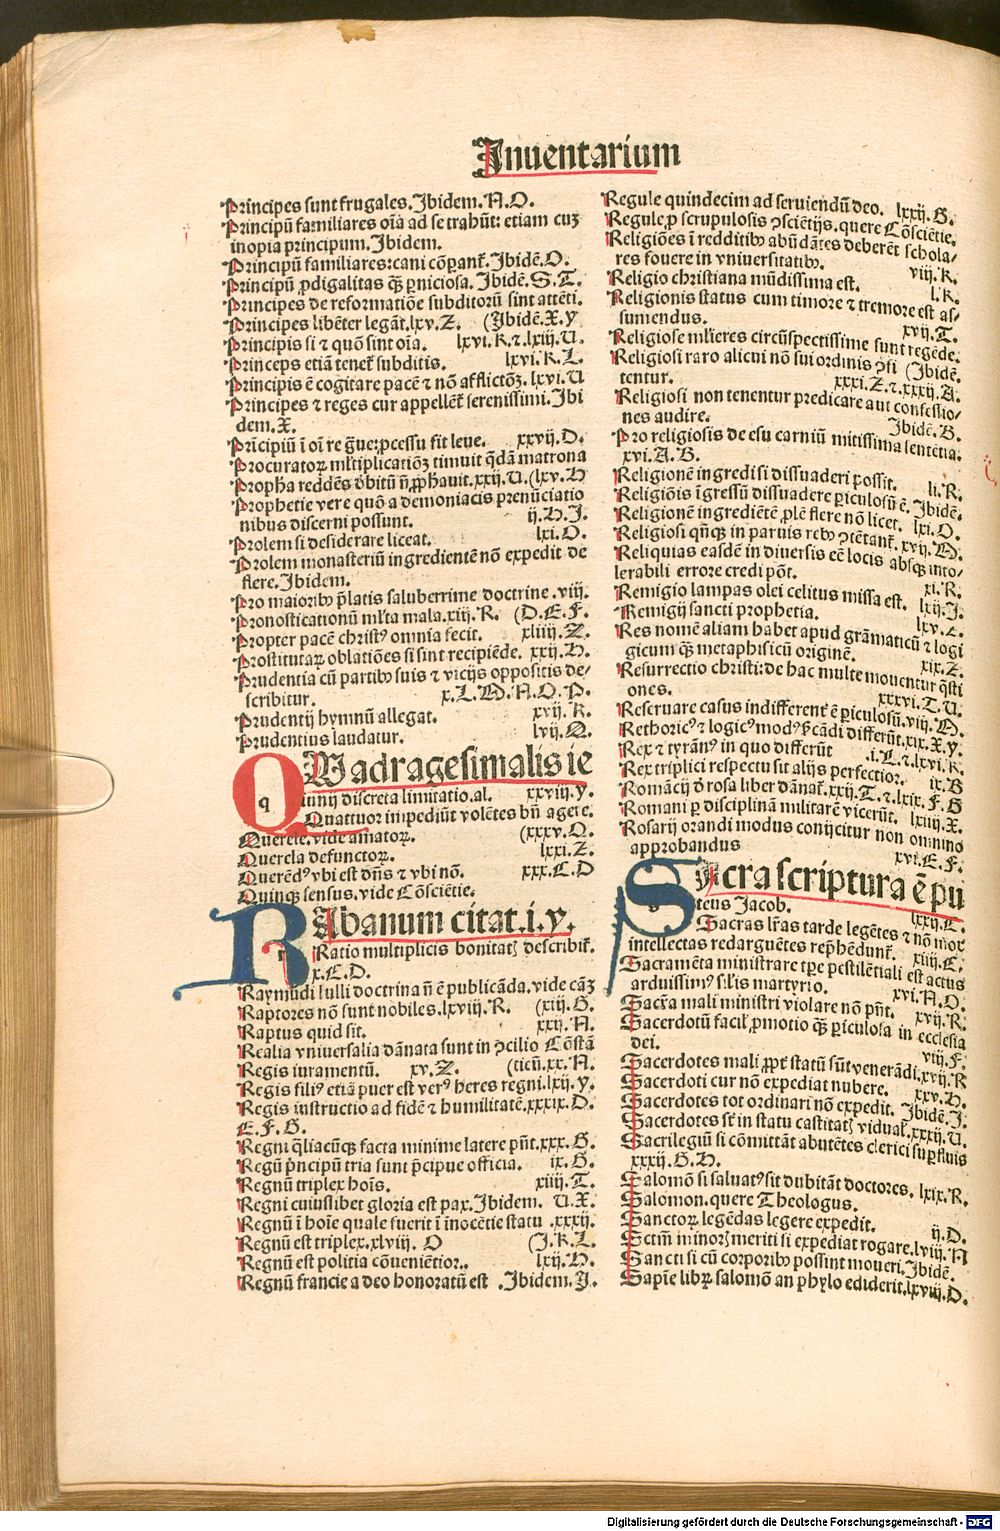 Inuentarium
Principes sunt frugales. Ibidem. N.O.
Principū familiares oīa ad se trahūt: etiam cuꝫ
inopia principum. Ibidem.
Principū familiares: cani cōꝑant᷑. Ibidē. O.
Principū ꝓdigalitas q̄ꝫ ꝑniciosa. Ibidē. S.T.
Principes de reformatiōe subditorū sint attēti.
Principes libēter legāt. lxv. Z. (Ibidē. X.y
Principis si ⁊ quō sint oīa. lxvi. K. ⁊. lxiij. U.
Princeps etiā tenet᷑ subditis. lxvi. K. L.
Principis ē cogitare pacē ⁊ nō afflictōꝫ. lxvi. U
Principes ⁊ reges cur appellēt᷑ serenissimi. Ibi
dem. X.
Prīcipiū ī oī re ḡue: ꝓcessu fit leue. xxvij. D.
Procuratoꝝ ml'tiplicatiōꝫ timuit q̄dā matrona
Propha reddēs ꝺbitū n̄ ꝓphauit. xxij. U. (lxv. H
Prophetie vere quō a demoniacis prenūciatio
nibus discerni possunt. ij. H. I.
Prolem si desiderare liceat. lxi. O.
Prolem monasteriū ingredientē nō expedit de
flere. Ibidem.
Pro maioribꝰ p̄latis saluberrime doctrine. viij.
Pronosticationū ml'ta mala. xiij. R. (D.E.F.
Propter pacē christꝰ omnia fecit. xliiij. Z.
Prostitutaꝝ oblatiōes si sint recipiēde. xxij. H.
Prudentia cū partibꝰ suis ⁊ vicijs oppositis de/
scribitur. x. L. M. N. O. P.
Prudentij hymnū allegat. xvij. K.
Prudentius laudatur. lvij. Q.
QUadragesimalis ie
iunij discreta limitatio. al. xxviij. y.
Quattuor impediūt volētes bn̄ agere.
Querele. vide amatoꝝ. (xxxv. Q.
Querela defunctoꝝ. lxxi. Z.
Querēdꝰ vbi est dn̄s ⁊ vbi nō. xxx. C. D
Quinqꝫ sensus. vide Cōsciētie.
RAbanum citat. i. y.
Ratio multiplicis bonitatꝭ describit᷑.
x. E. D.
Raymūdi lulli doctrina n̄ ē publicāda. vide cāꝫ
Raptores nō sunt nobiles. lxviij. R. (xiij. G.
Raptus quid sit. xxij. N.
Realia vniuersalia dānata sunt in ꝯcilio Cōstā
Regis iuramentū. xv. Z. (tieñ. xx. N.
Regis filiꝰ etiā puer est verꝰ heres regni. lxij. y.
Regis instructio ad fidē ⁊ humilitatē. xxxix. D.
E. F. G.
Regni q̄liacūqꝫ facta minime latere pn̄t. xxx. G.
Regū pⁱncipū tria sunt pⁱcipue officia. ix. G.
Regnū triplex hoīs. xiiij. T.
Regni cuiuslibet gloria est pax. Ibidem. U.X.
Regnū ī hoīe quale fuerit ī inocētie statu. xxxij.
Regnū est triplex. xlviij. O (I. K. L.
Regnū est politia cōueniētior.. lxij. H.
Regnū francie a deo honoratū est. Ibidem. I.
Regule quindecim ad seruiendū deo. lxxij. G.
Regule ꝓ scrupulosis ꝯsciētijs. quere Cōsciētie.
Religiōes ī redditibꝰ abūdātes deberēt schola/
res fouere in vniuersitatibꝰ. viij. K.
Religio christiana mūdissima est. l. K.
Religionis status cum timore ⁊ tremore est as/
sumendus. xvij. T.
Religiose ml'ieres circūspectissime sunt regēde.
Religiosi raro alicui nō sui ordinis ꝯfi (Ibidē.
tentur. xxxi. Z. ⁊. xxxij. A.
Religiosi non tenentur predicare aut confessio/
nes audire. Ibidē. B.
Pro religiosis de esu carniū mitissima sentētia.
xvi. A. B.
Religionē ingredi si dissuaderi possit. li. R.
Religiōis īgressū dissuadere ꝑiculosū ē. Ibidē.
Religionē ingrediētē ꝓlē flere nō licet. lxi. O.
Religiosi qn̄qꝫ in paruis rebꝰ ꝯtētant᷑. xvij. M.
Reliquias easdē in diuersis eē locis absqꝫ into/
lerabili errore credi pōt. xi. R.
Remigio lampas olei celitus missa est. lxij. I.
Remigij sancti prophetia.
Res nomē aliam habet apud grāmaticū ⁊ logi
gicum q̄ꝫ metaphisicū originē. xix. Z.
Resurrectio christi: de hac multe mouentur q̄sti
ones. xxxvi. T. U.
Reseruare casus indifferent᷑ ē ꝑiculosū. viij. M.
Rethoricꝰ ⁊ logicꝰ modꝰ ꝓcādi differūt. xix. X. y.
Rex ⁊ tyrānꝰ in quo differūt .i. L. ⁊. lxvi. K.
Rex triplici respectu sit alijs perfectior. ix. B
Romācij ꝺ rosa liber dānat᷑. xxij. T. ⁊. lxix. F. G
Romani ꝑ disciplinā militarē vicerūt. lxiiij. X.
Rosarij orandi modus conijcitur non omnino
approbandus xvi. E. F.
SAcra scriptura ē pu
teus Jacob. lxxij. C.
Sacras lr̄as tarde legētes ⁊ nō mox
intellectas redarguētes rep̄hēdunt᷑. xiiij. C.
Sacramēta ministrare tꝑe pestilētiali est actus
arduissimꝰ sil'is martyrio. xvi. N. O.
Sacrā mali ministri violare nō pn̄t. xvij. R.
Sacerdotū facil' ꝓmotio q̄ꝫ ꝑiculosa in ecclesia
dei. viij. F.
Sacerdotes mali ꝓpt̄ statū sūt venerādi. xvij. R
Sacerdoti cur nō expediat nubere. xxv. H.
Sacerdotes tot ordinari nō expedit. Ibidē. I.
Sacerdotes st̄ in statu castitatꝭ vidual'. xxxij. U.
Sacrilegiū si cōmittāt abutētes clerici suꝑfluis
xxxij. G. H.
Salomō si saluatꝰ sit dubitāt doctores. lxix. R.
Salomon. quere Theologus.
Sanctoꝝ legēdas legere expedit. ij. D.
Sctm̄ minorꝭ meriti si expediat rogare. lviij. N
Sancti si cū corporibꝰ possint moueri. Ibidē.
Sapīe libꝝ salomō an phylo ediderit. lxviij. D.
Digitalisierung gefördert durch die Deutsche Forschungsgemeinschaft - DFG